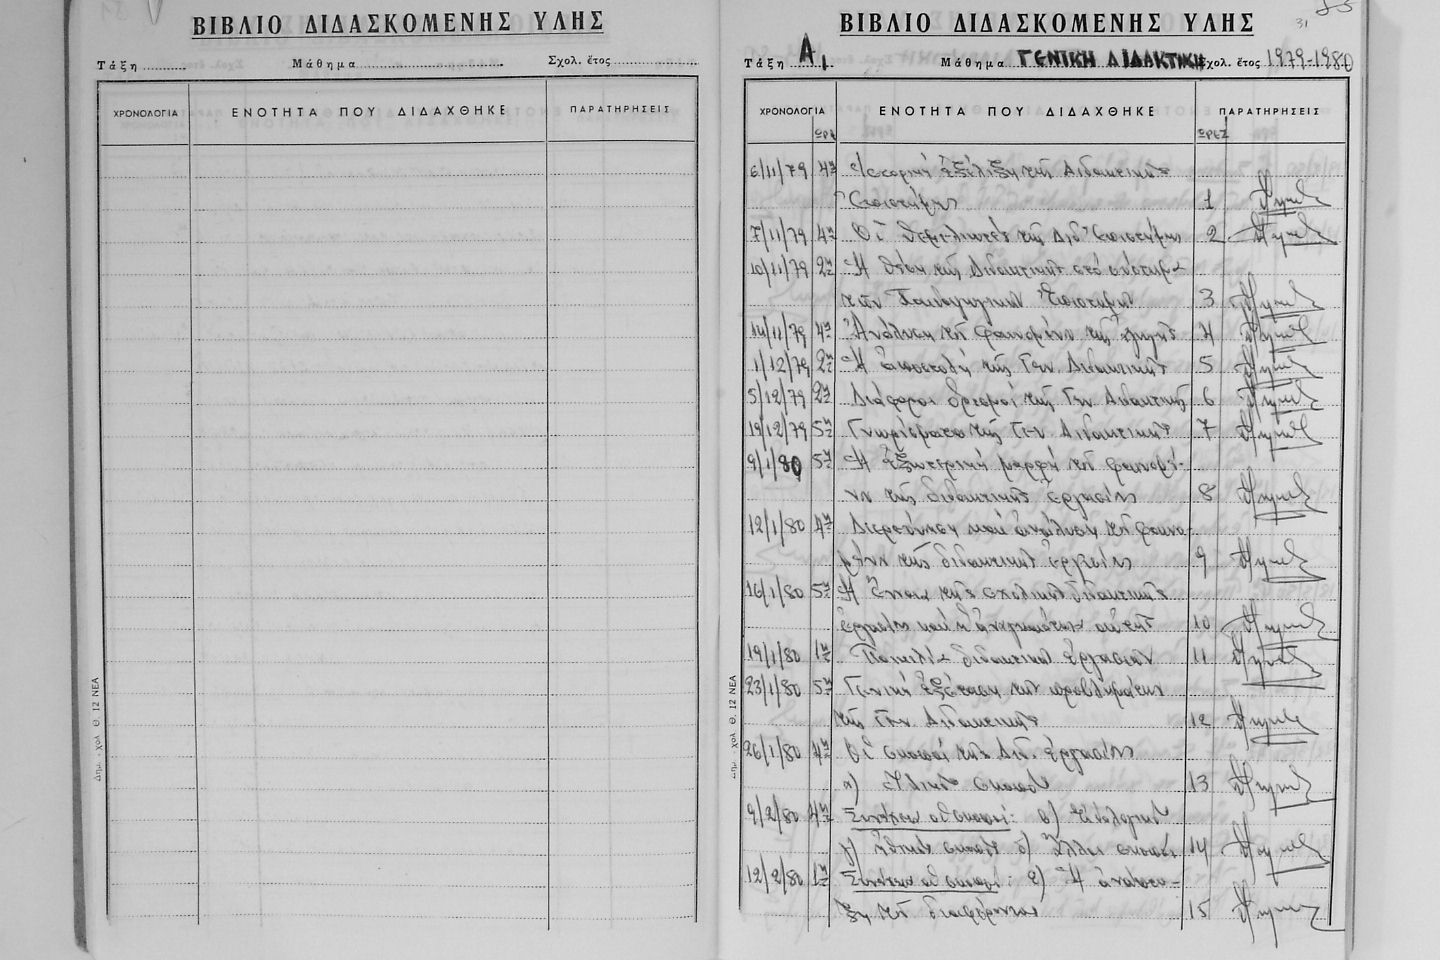 ΒΙΒΛΙΟ ΔΙΔΑΣΚΟΜΕΝΗΣ ΥΛΗΣ
Τάξη Μάθημα Σχολ. ἔτος
ΧΡΟΝΟΛΟΓΙΑ ΕΝΟΤΗΤΑ ΠΟΥ ΔΙΔΑΧΘΗΚΕ ΠΑΡΑΤΗΡΗΣΕΙΣ
31
ΒΙΒΛΙΟ ΔΙΔΑΣΚΟΜΕΝΗΣ ΥΛΗΣ
Τάξη Α1 Μάθημα ΓΕΝΙΚΗ ΔΙΔΑΚΤΙΚΗ Σχολ. ἔτος 1979-1980
ΧΡΟΝΟΛΟΓΙΑ ΕΝΟΤΗΤΑ ΠΟΥ ΔΙΔΑΧΘΗΚΕ ΠΑΡΑΤΗΡΗΣΕΙΣ
ΩΡΑ ΩΡΕΣ
6/11/79 4η Ἱστορική ἐξέλιξη τῆς Διδακτικῆς
Ἐπιστήμης 1
7/11/79 4η Οἱ θεμελιωτές τῆς Διδ. Ἐπιστήμης 2
10/11/79 2η Ἡ θέση τῆς Διδακτικῆς στό σύστημα
τῶν Παιδαγωγικῶν Ἐπιστημῶν 3
14/11/79 4η Ἀνάλυση τοῦ φαινομένου τῆς ἀγωγῆς 4
1/12/79 2η Ἡ ἀποστολή τῆς Γεν. Διδακτικῆς 5
5/12/79 2η Διάφοροι ὁρισμοί τῆς Γεν. Διδακτικῆς 6
19/12/79 5η Γνωρίσματα τῆς Γεν. Διδακτικῆς 7
9/1/80 5η Ἡ ἐξωτερική μορφή τοῦ φαινομέ-
νου τῆς διδακτικῆς ἐργασίας 8
12/1/80 4η Διερεύνηση καί ἀνάλυση τοῦ φαινο-
μένου τῆς διδακτικῆς ἐργασίας 9
16/1/80 5η Ἡ ἔννοια τῆς σχολικῆς διδακτικῆς
ἐργασίας καί ἡ ἀναγκαιότητα αὐτῆς 10
19/1/80 1η Ποικιλία διδακτικῶν ἐργασιῶν 11
23/1/80 5η Γενική ἐξέταση τῶν προβλημάτων
τῆς Γεν. Διδακτικῆς 12
26/1/80 4η Οἱ σκοποί τῆς Διδ. ἐργασίας
α) Εἰδικός σκοπός 13
9/2/80 4η Συνέχεια οἱ σκοποί: β) Τελολογικός
γ) ἠθικός σκοπός δ) Ἄλλοι σκοποί 14
12/2/80 1η Συνέχεια οἱ σκοποί: ε) Ἡ ἀνάπτυ-
ξη τοῦ διαφέροντος 15
Δημ. σχολ. Θ. 12 ΝΕΑ
Δημ. σχολ. Θ. 12 ΝΕΑ